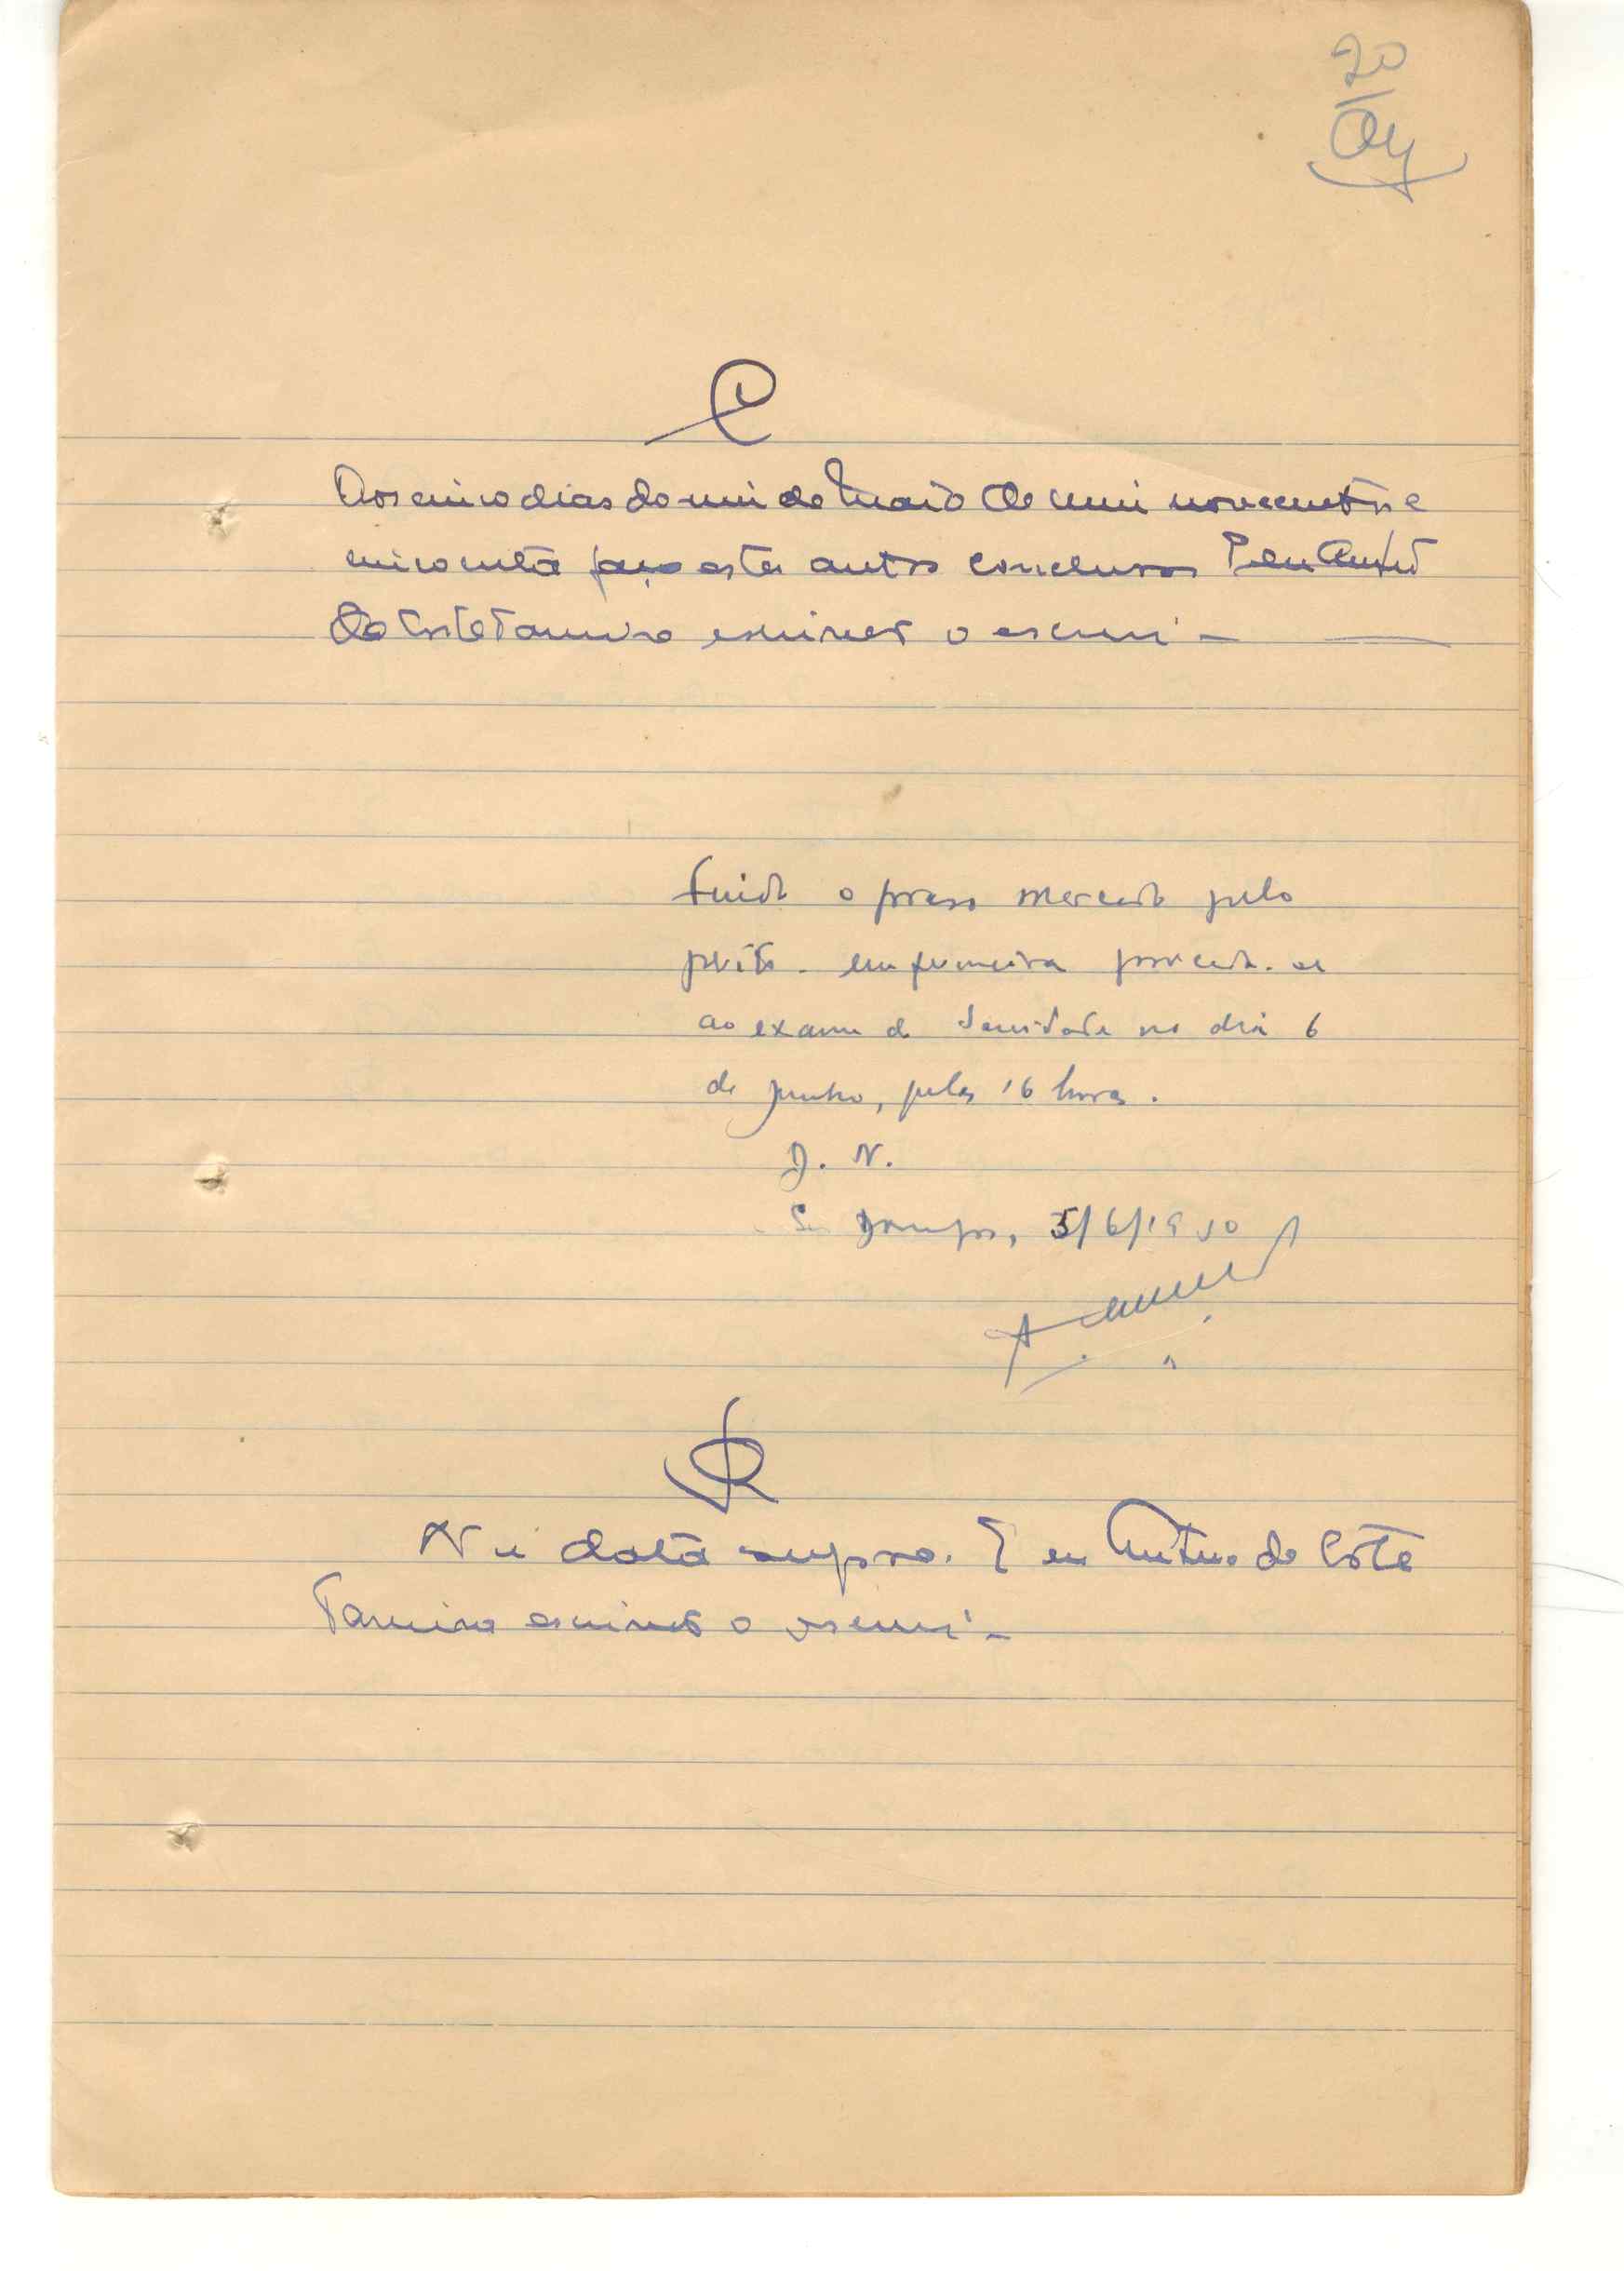 20
C
Aos cinco dias do mês de Maio de mil novecentos e
cincoenta faço estes autos conclusos E eu
da Costa Ferreira escrivão o escrevi -
Findo o prazo marcado pelo
perito enfermeira proceda-se
ao exame de sanidade no dia 6
de Junho, pelas 16 horas.
D. N.
S. Domingos, 5/6/1950
R
Na data supra. E eu António da Costa
Ferreira escrivão o escrevi -